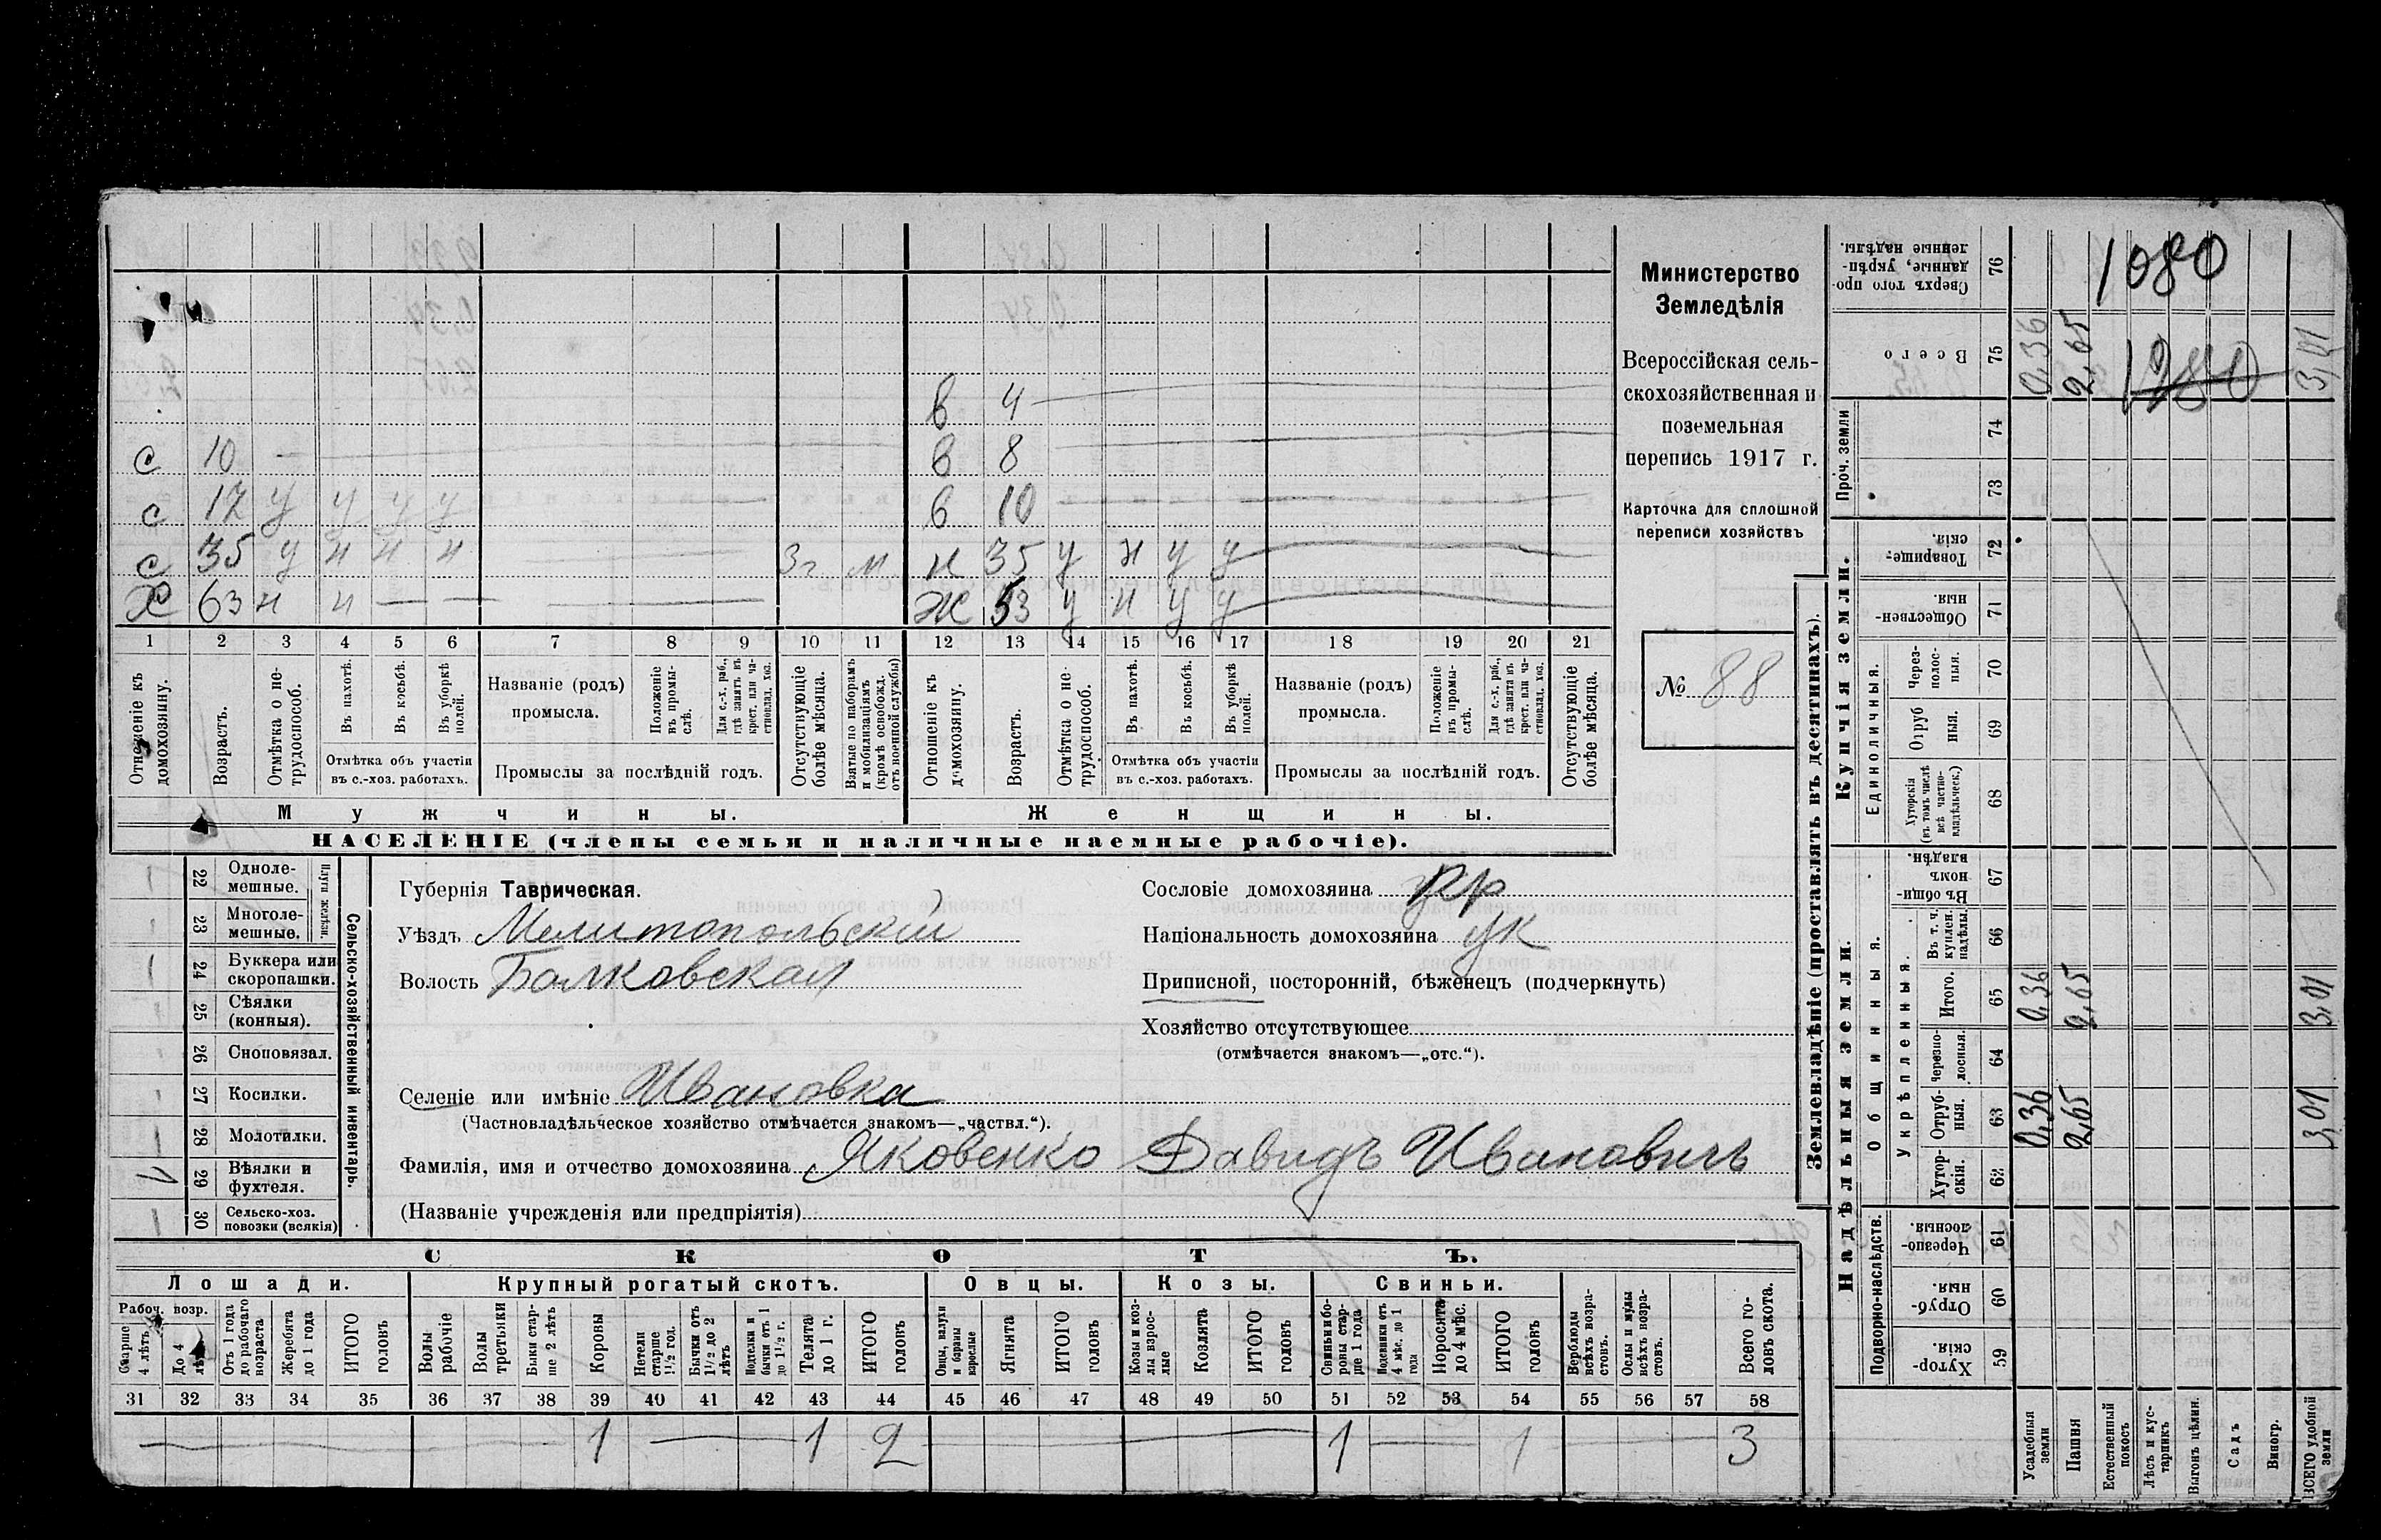 1080
1980
Министерство
Земледѣлія
Всероссійская сель-
скохозяйственная и
поземельная
перепись 1917 г.
Карточка для сплошной
переписи хозяйствъ
№ 88
в 4
с 10
в 8
с 17 у у у у
в 10
с 35 у н н н 3г м
н 35 у н у у
Х 63 н н
Ж 53 у н у у
1 2 3 4 5 6 7 8 9 10 11 12 13 14 15 16 17 18 19 20 21
Отношеніе къ домохозяину.
Возрастъ.
Отмѣтка о не-трудоспособ.
Въ пахотѣ.
Въ косьбѣ.
Въ уборкѣ полей.
Отмѣтка объ участіи
въ с.-хоз. работахъ.
Названіе (родъ)
промысла.
Положеніе въ промы-слѣ.
Для с.-х. раб., гдѣ занятъ въ крест. или ча-стновлад. хоз.
Промыслы за послѣдній годъ.
Отсутствующіе болѣе мѣсяца.
Взятые по наборамъ и мобилизаціямъ (кромѣ освобожд. отъ военной службы)
Отношеніе къ домохозяину.
Возрастъ.
Отмѣтка о не-трудоспособ.
Въ пахотѣ.
Въ косьбѣ.
Въ уборкѣ полей.
Отмѣтка объ участіи
въ с.-хоз. работахъ.
Названіе (родъ)
промысла.
Положеніе въ промы-слѣ.
Для с.-х. раб., гдѣ занята въ крест. или ча-стновлад. хоз.
Промыслы за послѣдній годъ.
Отсутствующіе болѣе мѣсяца.
Мужчины.
Женщины.
НАСЕЛЕНІЕ (члены семьи и наличные наемные рабочіе).
Сельско-хозяйственный инвентарь.
Плуги желѣзн.
22 Одноле-мешные.
23 Многоле-мешные.
24 Буккера или скоропашки.
25 Сѣялки (конныя).
26 Сноповязал.
27 Косилки.
28 Молотилки.
29 Вѣялки и фухтеля.
30 Сельско-хоз. повозки (всякія)
Губернія Таврическая.
Уѣздъ Мелитопольскій
Волость Балковская
Селеніе или имѣніе Ивановка
(Частновладѣльческое хозяйство отмѣчается знакомъ—„частвл.“).
Фамилія, имя и отчество домохозяина Яковенко Давидъ Ивановичъ
(Названіе учрежденія или предпріятія)
Сословіе домохозяина кр
Національность домохозяина ук
Приписной, посторонній, бѣженецъ (подчеркнуть)
Хозяйство отсутствующее
(отмѣчается знакомъ—„отс.“).
СКОТЪ.
Лошади.
Крупный рогатый скотъ.
Овцы.
Козы.
Свиньи.
Рабоч. возр.
Старше 4 лѣтъ
До 4 лѣтъ
Отъ 1 года до рабочаго возраста
Жеребята до 1 года
ИТОГО головъ
Волы рабочіе
Волы третьяки
Быки стар-ше 2 лѣтъ
Коровы
Нетели старше 1½ год.
Бычки отъ 1½ до 2 лѣтъ
Подтелки и бычки отъ 1 до 1½ г.
Телята до 1 г.
ИТОГО головъ
Овцы, валухи и бараны взрослые
Ягнята
ИТОГО головъ
Козы и коз-лы взрос-лые
Козлята
ИТОГО головъ
Свиньи и бо-ровы стар-ше 1 года
Подсвинки отъ 4 мѣс. до 1 года
Поросята до 4 мѣс.
ИТОГО головъ
Верблюды всѣхъ возра-стовъ.
Ослы и мулы всѣхъ возра-стовъ.
Всего го-ловъ скота.
31 32 33 34 35 36 37 38 39 40 41 42 43 44 45 46 47 48 49 50 51 52 53 54 55 56 57 58
1 1 2 1 1 3
Землевладѣніе (проставлять въ десятинахъ).
Надѣльныя земли.
Купчія земли.
Проч. земли
Подворно-наслѣдств.
Общинныя.
Укрѣпленныя.
Единоличныя.
Хутор-скія. 59
Отруб-ныя. 60
Черезпо-лосныя. 61
Хутор-скія. 62
Отруб-ныя. 63 0,36 2,65 3,01
Черезпо-лосныя. 64
Итого. 65 0,36 2,65 3,01
Въ т. ч. куплен. надѣлы. 66
Въ общи-номъ владѣн. 67
Хуторскія (въ томъ числѣ всѣ частно-владѣльческ.) 68
Отруб-ныя. 69
Через-полос-ныя. 70
Обществен-ныя. 71
Товарище-скія. 72
73
74
Всего 75 0,36 2,65 3,01
Сверхъ того про-данные, укрѣп-ленные надѣлы. 76
Усадебныя земли
Пашня
Естественный покосъ
Лѣсъ и кус-тарникъ
Выгонъ цѣлин.
Садъ
Виногр.
ВСЕГО удобной земли